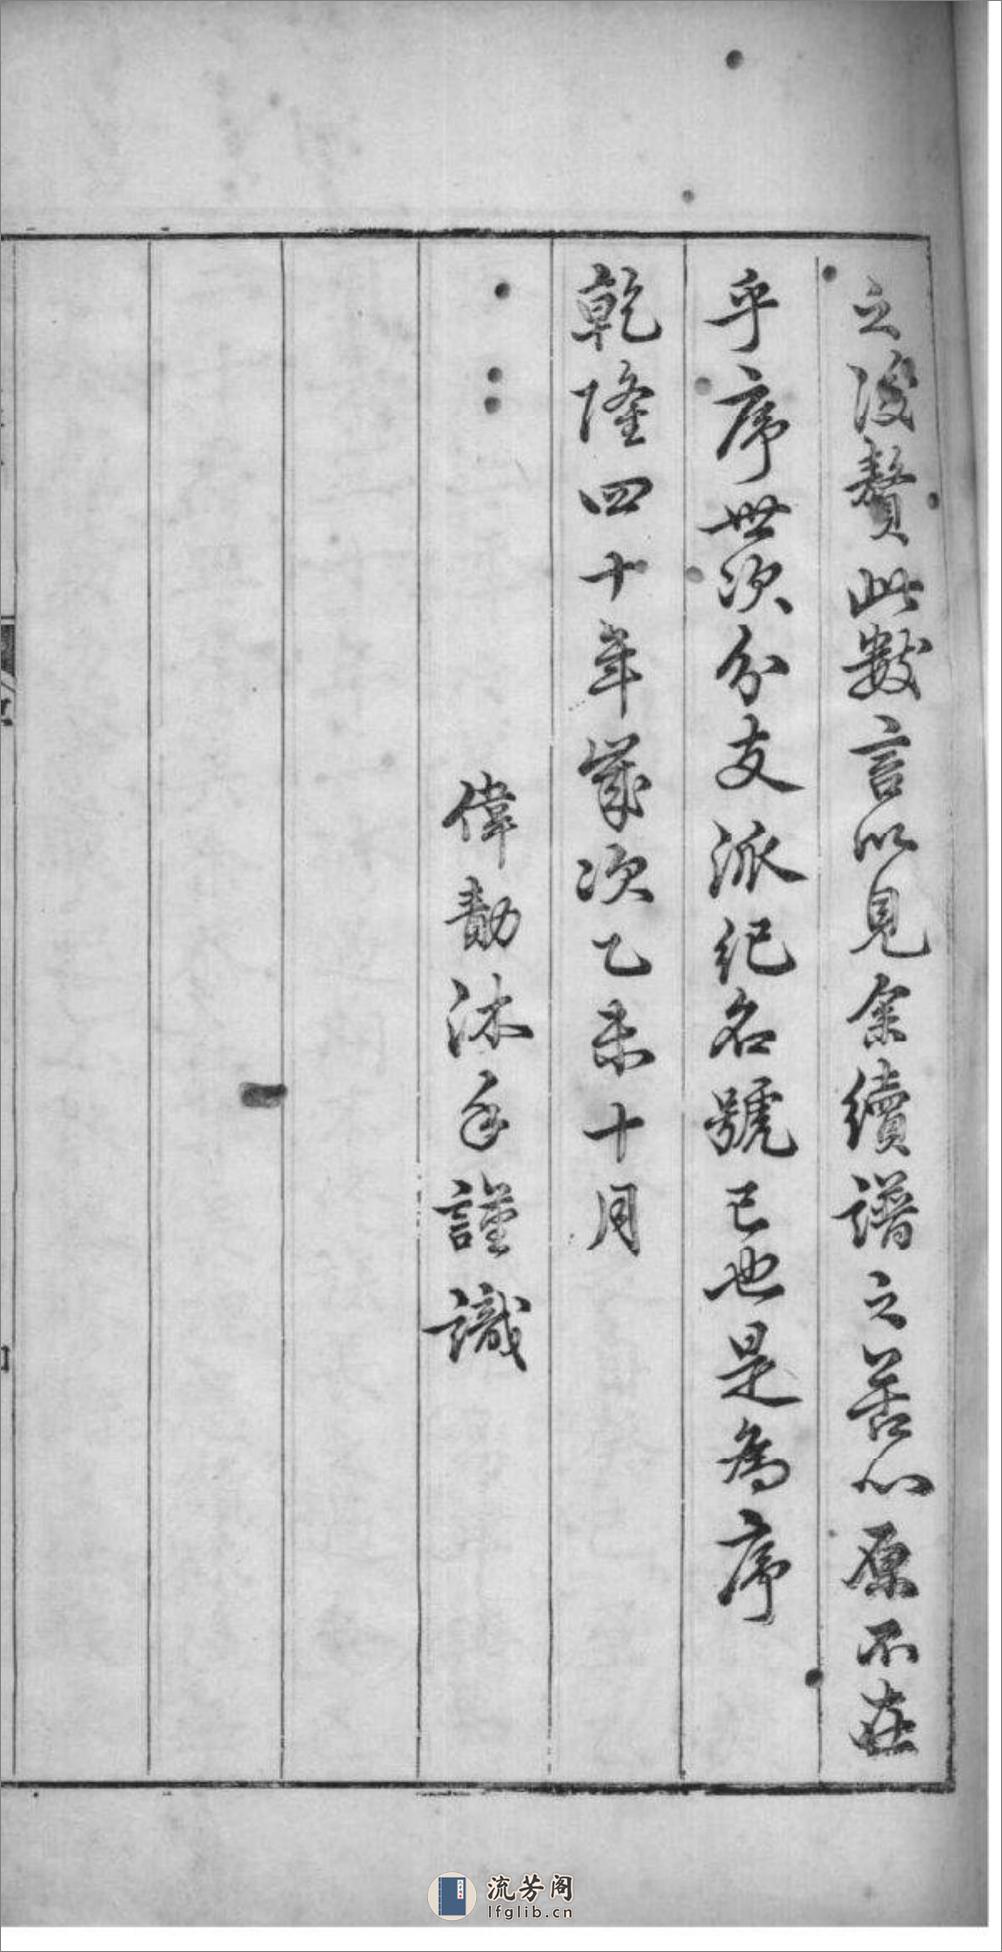 之後贅此數言以見余續譜之苦心原不在
乎序世次分支派紀名號已也是為序
乾隆四十年歲次乙未十月
偉勣沐手謹識
流芳阁
lfglib.cn